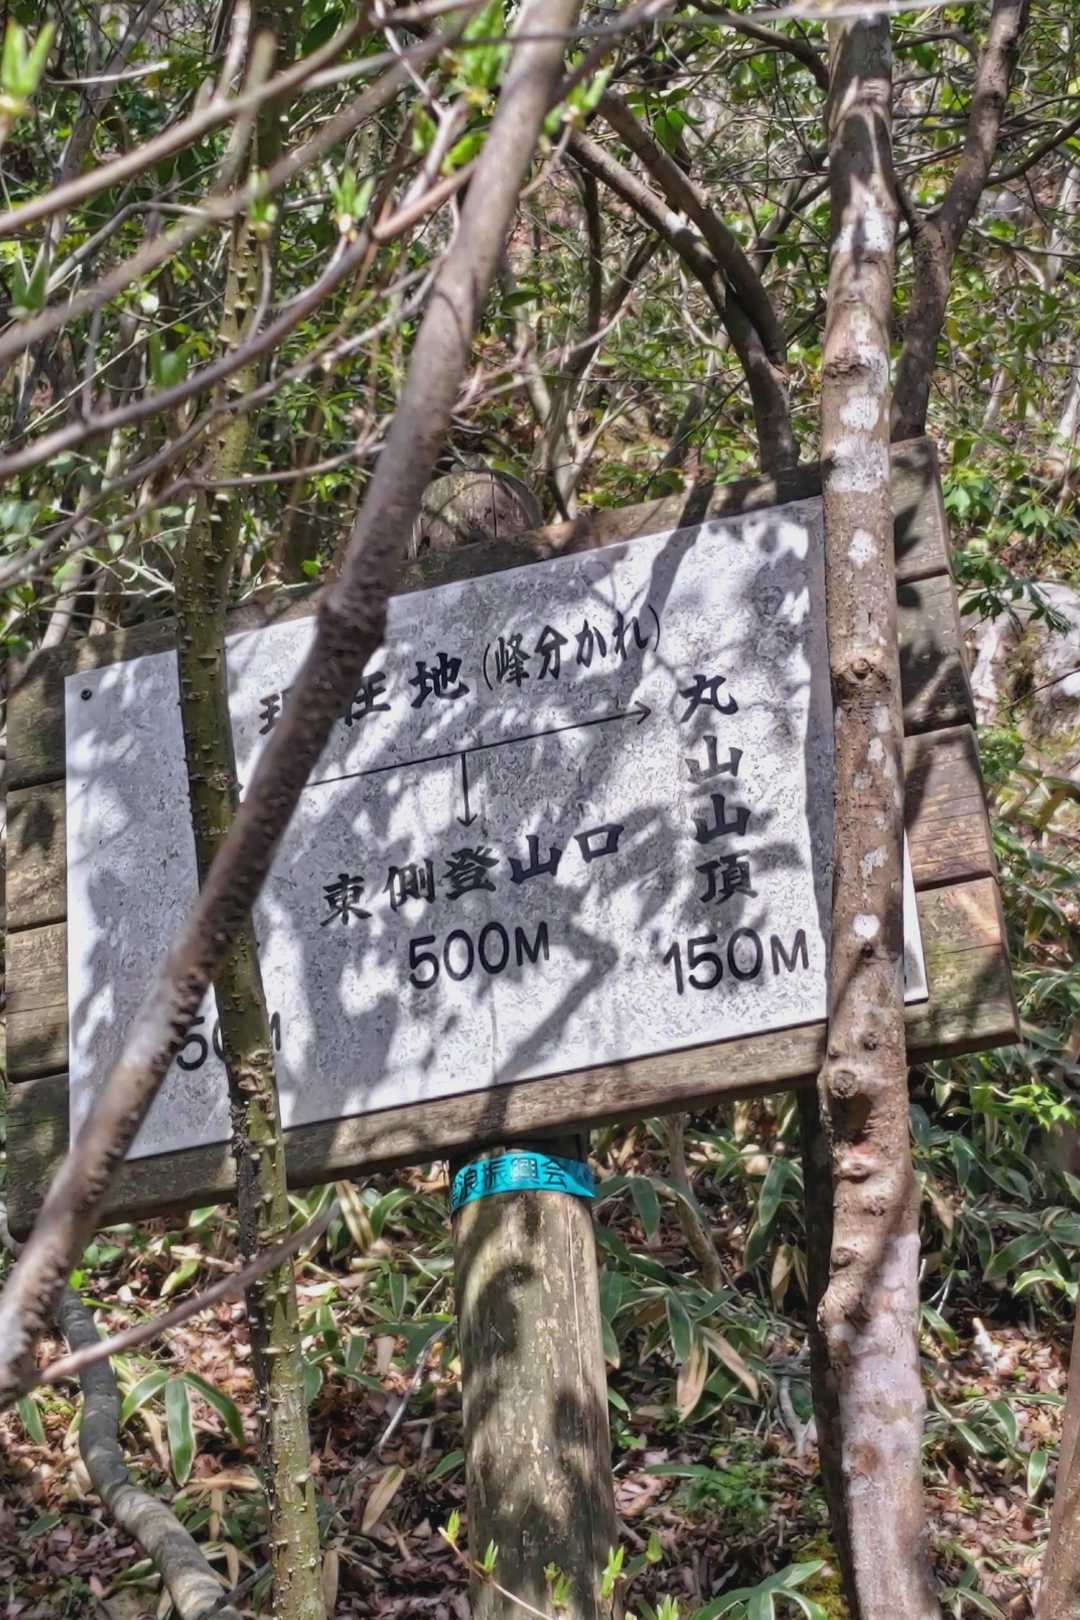 現在地(峰分かれ)
丸山山頂
150M
東側登山口
500M
50M
浪振興会